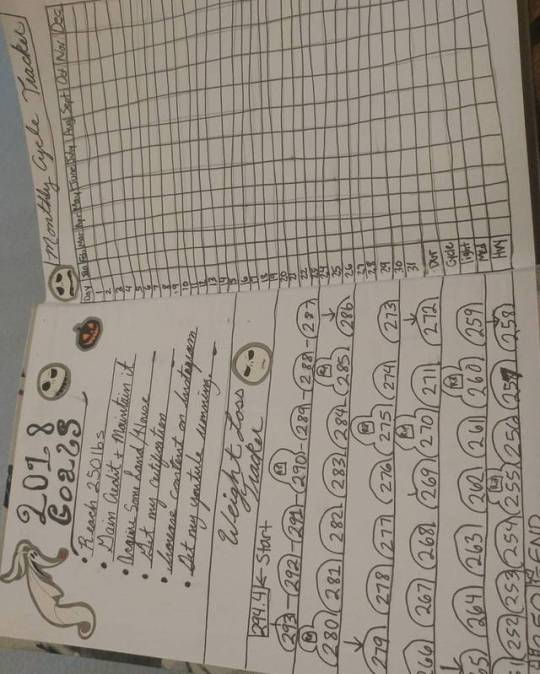 2018
Goals
• Reach 250 lbs
• Main Credit + Maintain it
• Acquire Some land/House
• Get my certification
• Increase content on Instagram
• Get my youtube running.
Weight Loss
Tracker
294.4 ← Start
293 - 292 - 291 - 290 - 289 - 288 - 287
280 281 282 283 284 285 286
279 278 277 276 275 274 273
266 267 268 269 270 271 272
264 263 262 261 260 259
252 253 254 255 256 257 258
END
Monthly Cycle Tracker
Day Jan Feb Mar Apr May June July Aug Sept Oct Nov Dec
1
2
3
4
5
6
7
8
9
10
11
12
13
14
15
16
17
18
19
20
21
22
23
24
25
26
27
28
29
30
31
Dur
Cycle
light
Med
HVY